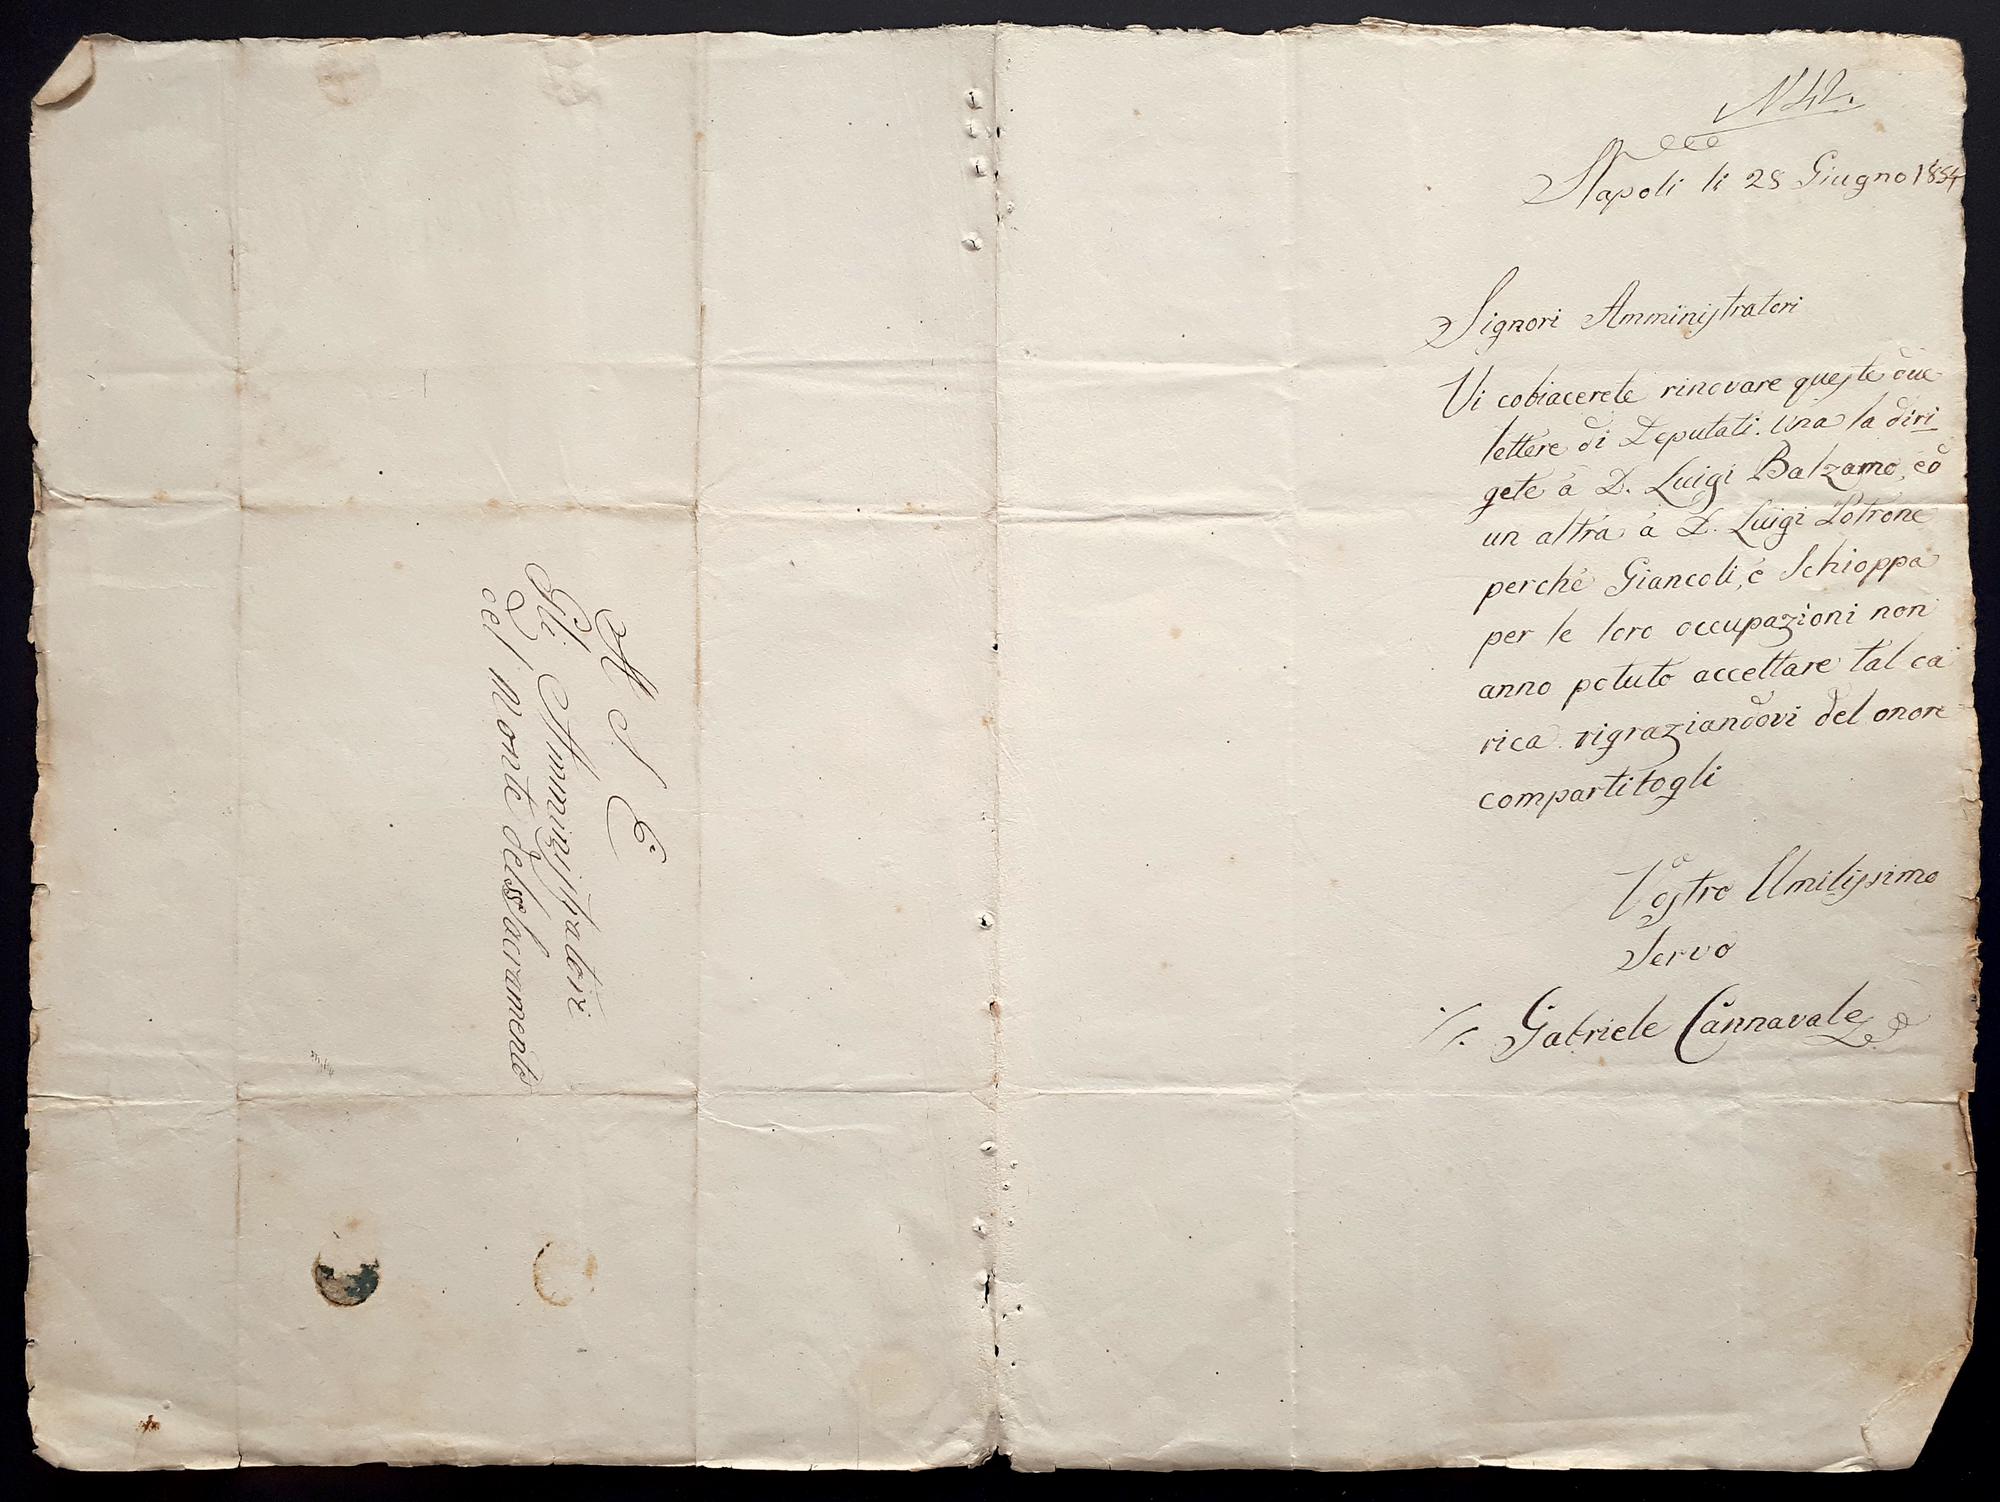 N 42.
Napoli li 28 Giugno 1854
Signori Amministratori
Vi cobiacerete rinovare queste due
lettere di Deputati. una la diri
gete à D. Luigi Balzamo, ed
un altra à D. Luigi Potrone
perchè Giancoli, è Schioppa
per le loro occupazioni non
anno potuto accettare tal ca
rica rigraziandovi del onore
compartitogli
Vostro Umilissimo
Servo
Gabriele Cannavale
A S E
Gli Amministratori
del Monte del SS Sacramento